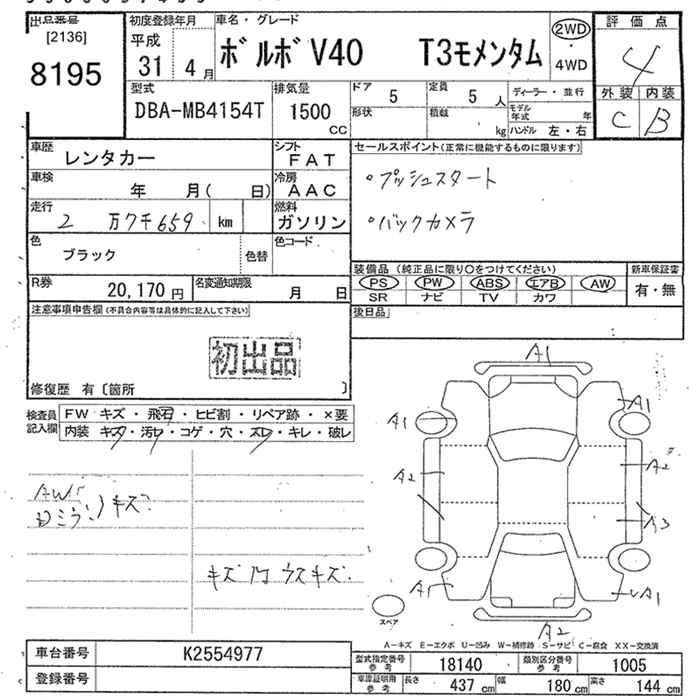 出品番号
[2136]
8195
初度登録年月
平成
31 4月
車名・グレード
ボルボ V40 T3モメンタム
2WD
・
4WD
評価点
4
外装 内装
C B
型式
DBA-MB4154T
排気量
1500
CC
ドア 5
定員 5人
形状
積載 kg
ディーラー・並行
モデル年式 年
ハンドル 左・右
車歴
レンタカー
シフト
FAT
車検
年 月( 日)
冷房
AAC
走行
2 万 7千 659 km
燃料
ガソリン
色
ブラック
色替
色コード
R券
20,170 円
名変通知期限
月 日
セールスポイント(正常に機能するものに限ります)
・プッシュスタート
・バックカメラ
装備品(純正品に限り○をつけてください)
PS PW ABS エアB AW
SR ナビ TV カワ
新車保証書
有・無
後日品
注意事項申告欄(不具合内容等は具体的に記入して下さい)
初出品
修復歴 有〔箇所 〕
検査員
記入欄
FW キズ・飛石・ヒビ割・リペア跡・×要
内装 キズ・汚レ・コゲ・穴・スレ・キレ・破レ
AW
キズ
キズ 内 ウスキズ
A1
A1
A1
A2
A2
A3
A1
A1
A2
スペア
A-キズ E-エクボ U-凹み W-補修跡 S-サビ C-腐食 XX-交換済
車台番号
K2554977
登録番号
型式指定番号
参考
18140
類別区分番号
参考
1005
車庫証明用
参考
長さ 437 cm
幅 180 cm
高さ 144 cm